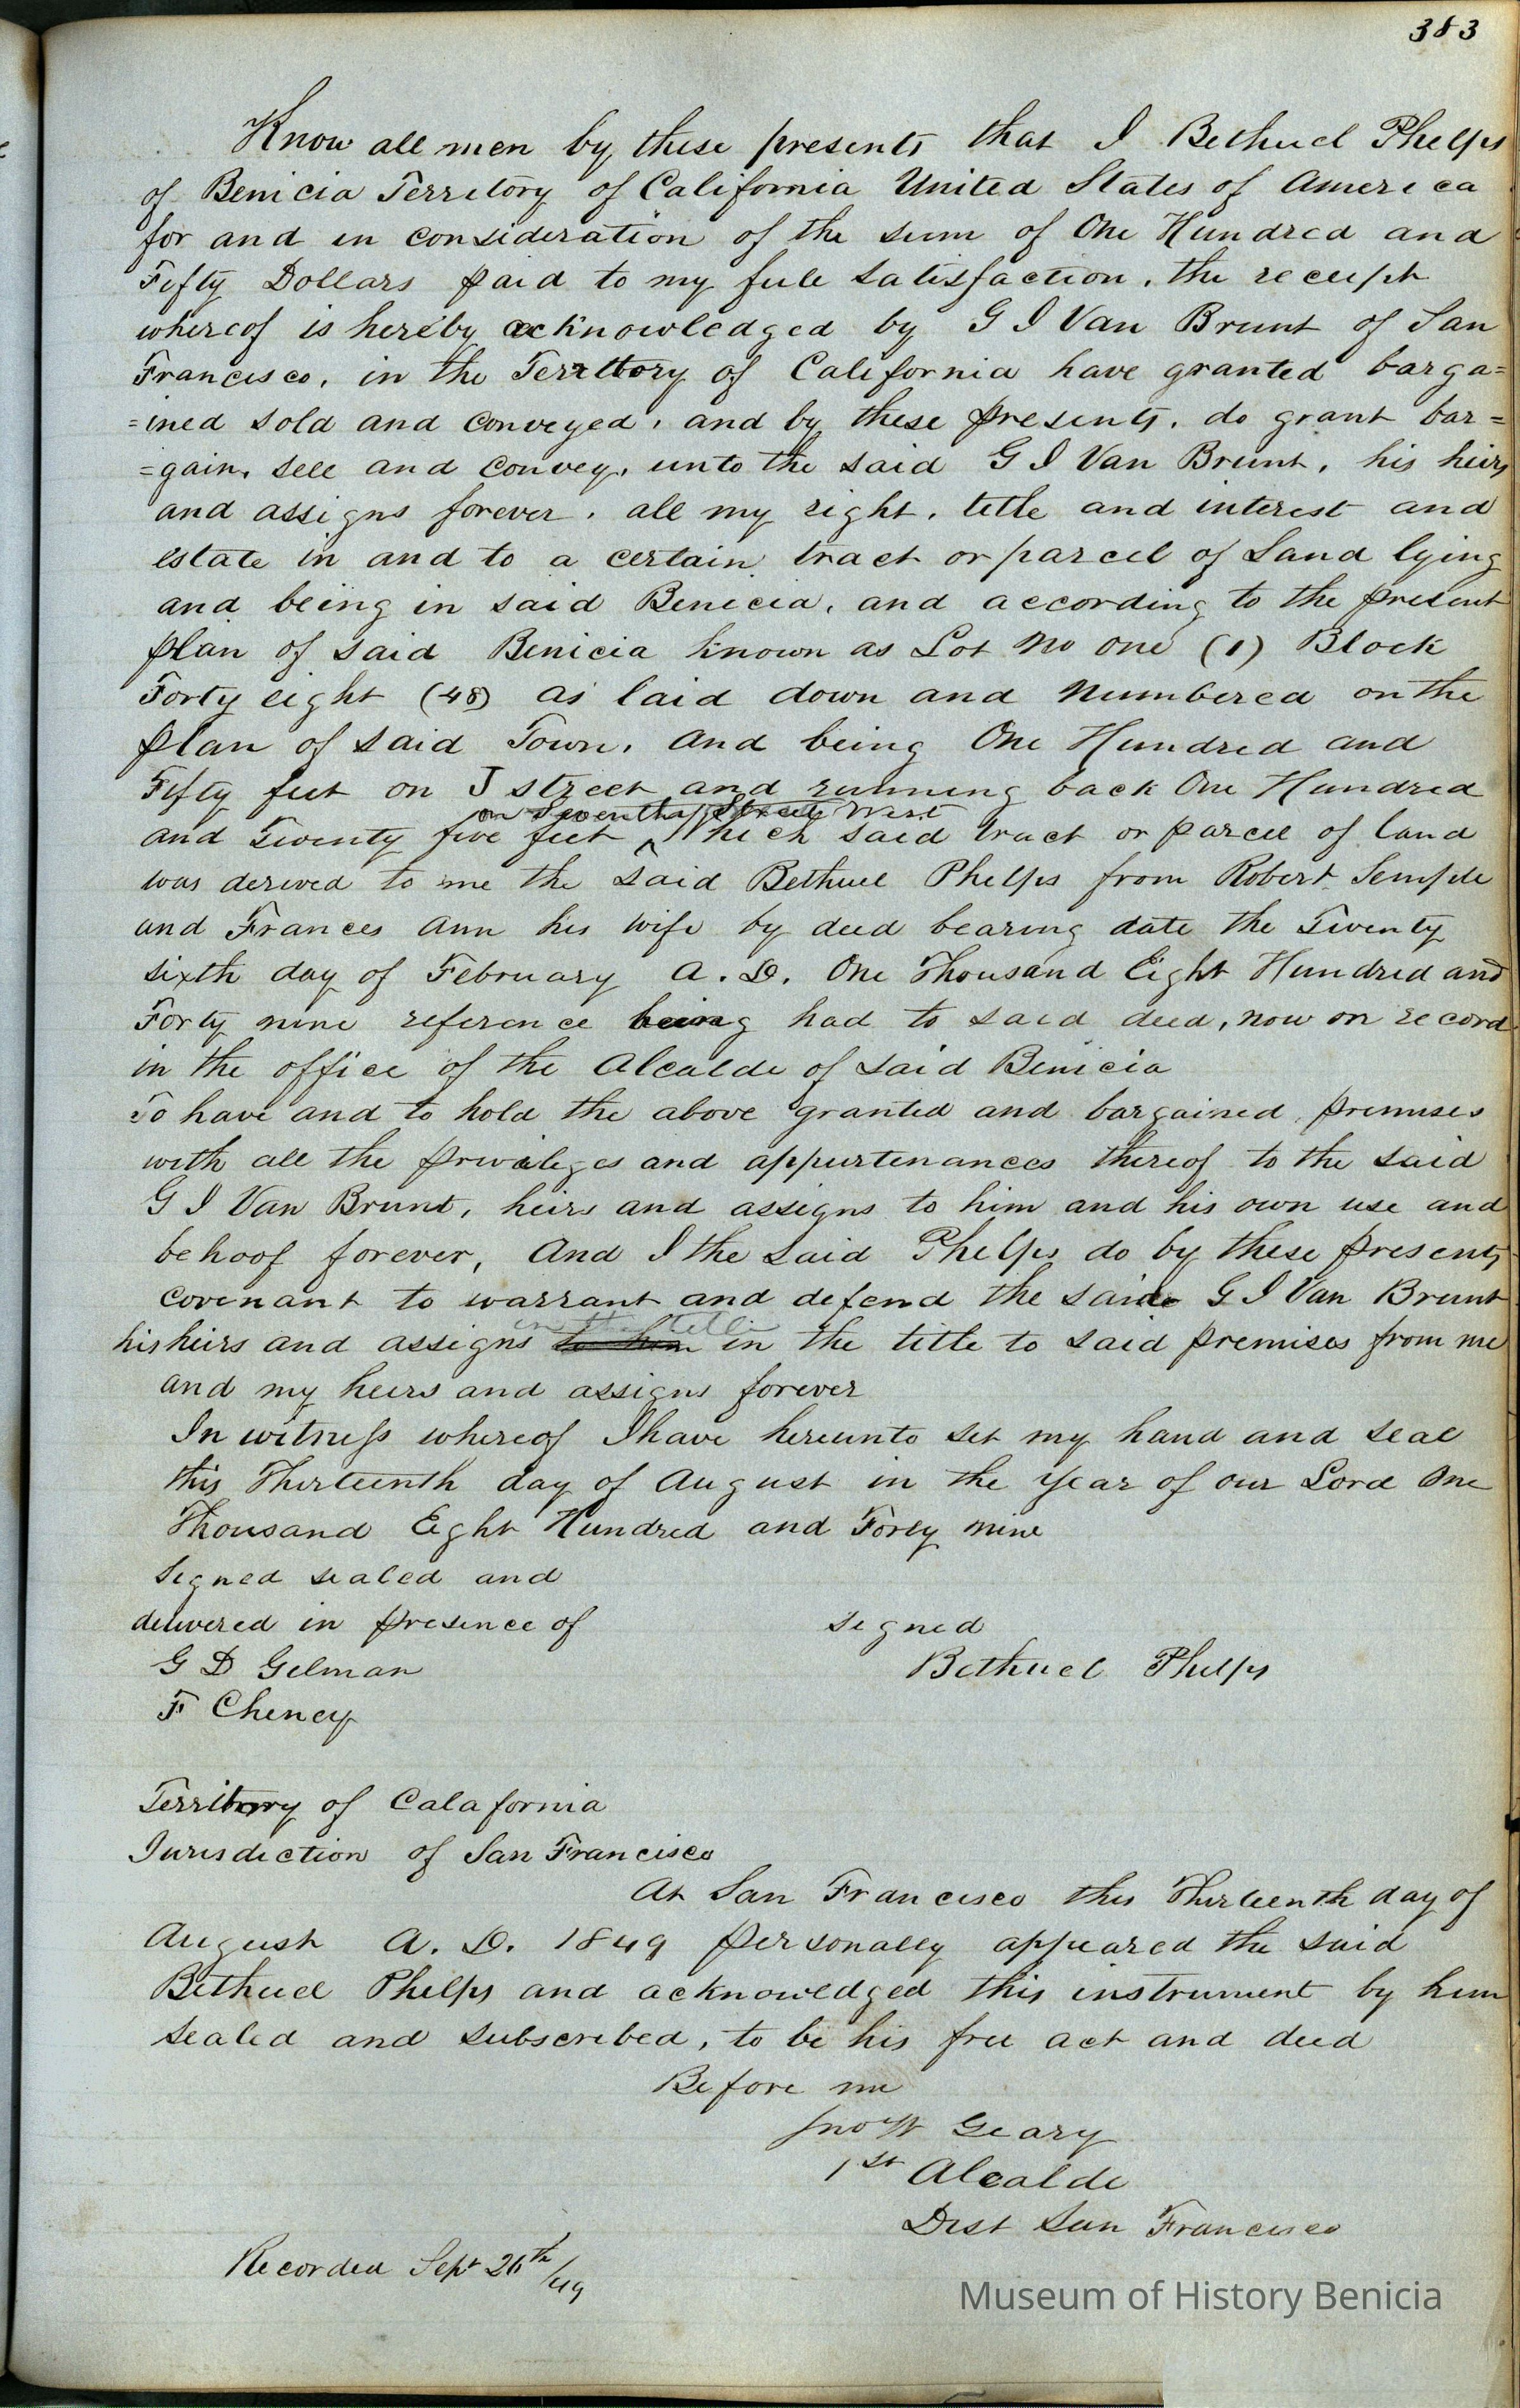 383
Know all men by these presents that I Bethuel Phelps
of Benicia Territory of California United States of America
for and in consideration of the sum of One Hundred and
Fifty Dollars paid to my full satisfaction, the receipt
whereof is hereby acknowledged by G I Van Brunt of San
Francisco, in the Territory of California have granted barga=
=ined sold and conveyed, and by these presents, do grant bar=
=gain, sell and convey, unto the said G I Van Brunt, his heirs
and assigns forever, all my right, title and interest and
estate in and to a certain tract or parcel of Land lying
and being in said Benicia, and according to the present
plan of said Benicia known as Lot No one (1) Block
Forty eight (48) as laid down and numbered on the
plan of said Town, and being One Hundred and
Fifty feet on J street and running back One Hundred
on Seventh Street West
and Twenty five feet ^ which said tract or parcel of land
was derived to me the said Bethuel Phelps from Robert Semple
and Frances Ann his wife by deed bearing date the Twenty
sixth day of February A. D. One Thousand Eight Hundred and
Forty nine reference being had to said deed, now on record
in the office of the Alcalde of said Benicia
To have and to hold the above granted and bargained premises
with all the privileges and appurtenances thereof to the said
G I Van Brunt, heirs and assigns to him and his own use and
behoof forever, And I the said Phelps do by these presents
covenant to warrant and defend the said G I Van Brunt
in the title
his heirs and assigns to him in the title to said premises from me
and my heirs and assigns forever
In witness whereof I have hereunto set my hand and seal
this Thirteenth day of August in the year of our Lord One
Thousand Eight Hundred and Forty nine
Signed sealed and
delivered in presence of signed
G D Gilman Bethuel Phelps
F Cheney
Territory of Calafornia
Jurisdiction of San Francisco
At San Francisco this Thirteenth day of
August A. D. 1849 personally appeared the said
Bethuel Phelps and acknowledged this instrument by him
sealed and subscribed, to be his free act and deed
Before me
Jno W Geary
1st Alcalde
Dist San Francisco
Recorded Sept 26th/49
Museum of History Benicia